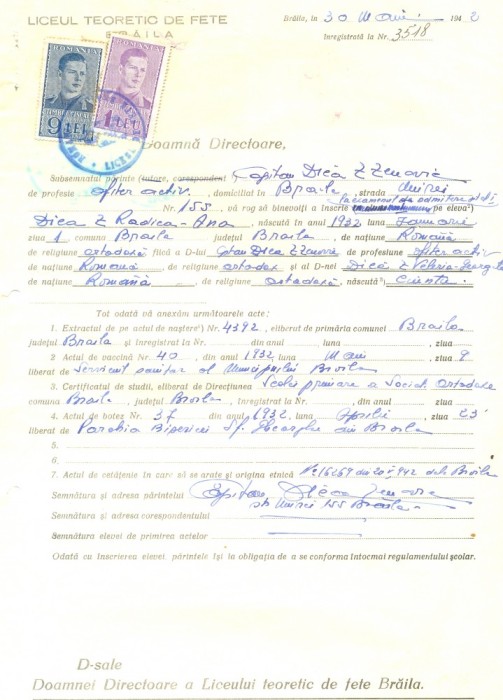 LICEUL TEORETIC DE FETE
BRĂILA
Brăila, în 30 Mai 1942
Inregistrată la Nr. 3518
ROMANIA ROMANIA
9 LEI 1 LEU
Doamnă Directoare,
Subsemnatul părinte (tutore, corespondent) Căpitan Dica Z Zenovie
de profesie ofiter activ, domiciliat în Braila, strada Unirei
Nr. 155, vă rog să binevoiți a înscrie la examenul de admitere pe eleva²)
Dica Z Radica-Ana, născută în anul 1932 luna Ianuarie
ziua 1 comuna Braila județul Braila, de națiune Română
de religiune ortodoxă fiică a D-lui Cpitan Dica Z Zenovie, de profesiune ofiter activ
de națiune Română, de religiune ortodox și al D-nei Dică Z Valeria
de națiune Română, de religiune ortodoxă, născută³)
Tot odată vă anexăm următoarele acte:
1. Extractul de pe actul de naștere¹) Nr. 4392, eliberat de primăria comunei Braila
județul Braila și înregistrat la Nr. din anul luna, ziua
2 Actul de vaccină Nr. 40, din anul 1932, luna Mai, ziua 9
liberat de Serviciul sanitar al Municipiului Braila
3. Certificatul de studii, eliberat de Direcțiunea Scolii primare a Societ. ortodoxe
comuna Braila, județul Braila, înregistrat la Nr. din anul
4. Actul de botez Nr. 37 din anul 1932, luna Aprilie, ziua 23
liberat de Parohia Bisericii Sf. Gheorghe din Braila
5.
6.
7. Actul de cetățenie în care să se arate și origina etnică No. 16169 din 942 Braila
Semnătura și adresa părintelui Căpitan Dica Zenovie
str Unirei 155 Braila
Semnătura și adresa corespondentului
Semnătura elevei de primirea actelor
Odată cu înscrierea elevei, părintele își ia obligația de a se conforma întocmai regulamentului școlar.
D-sale
Doamnei Directoare a Liceului teoretic de fete Brăila.